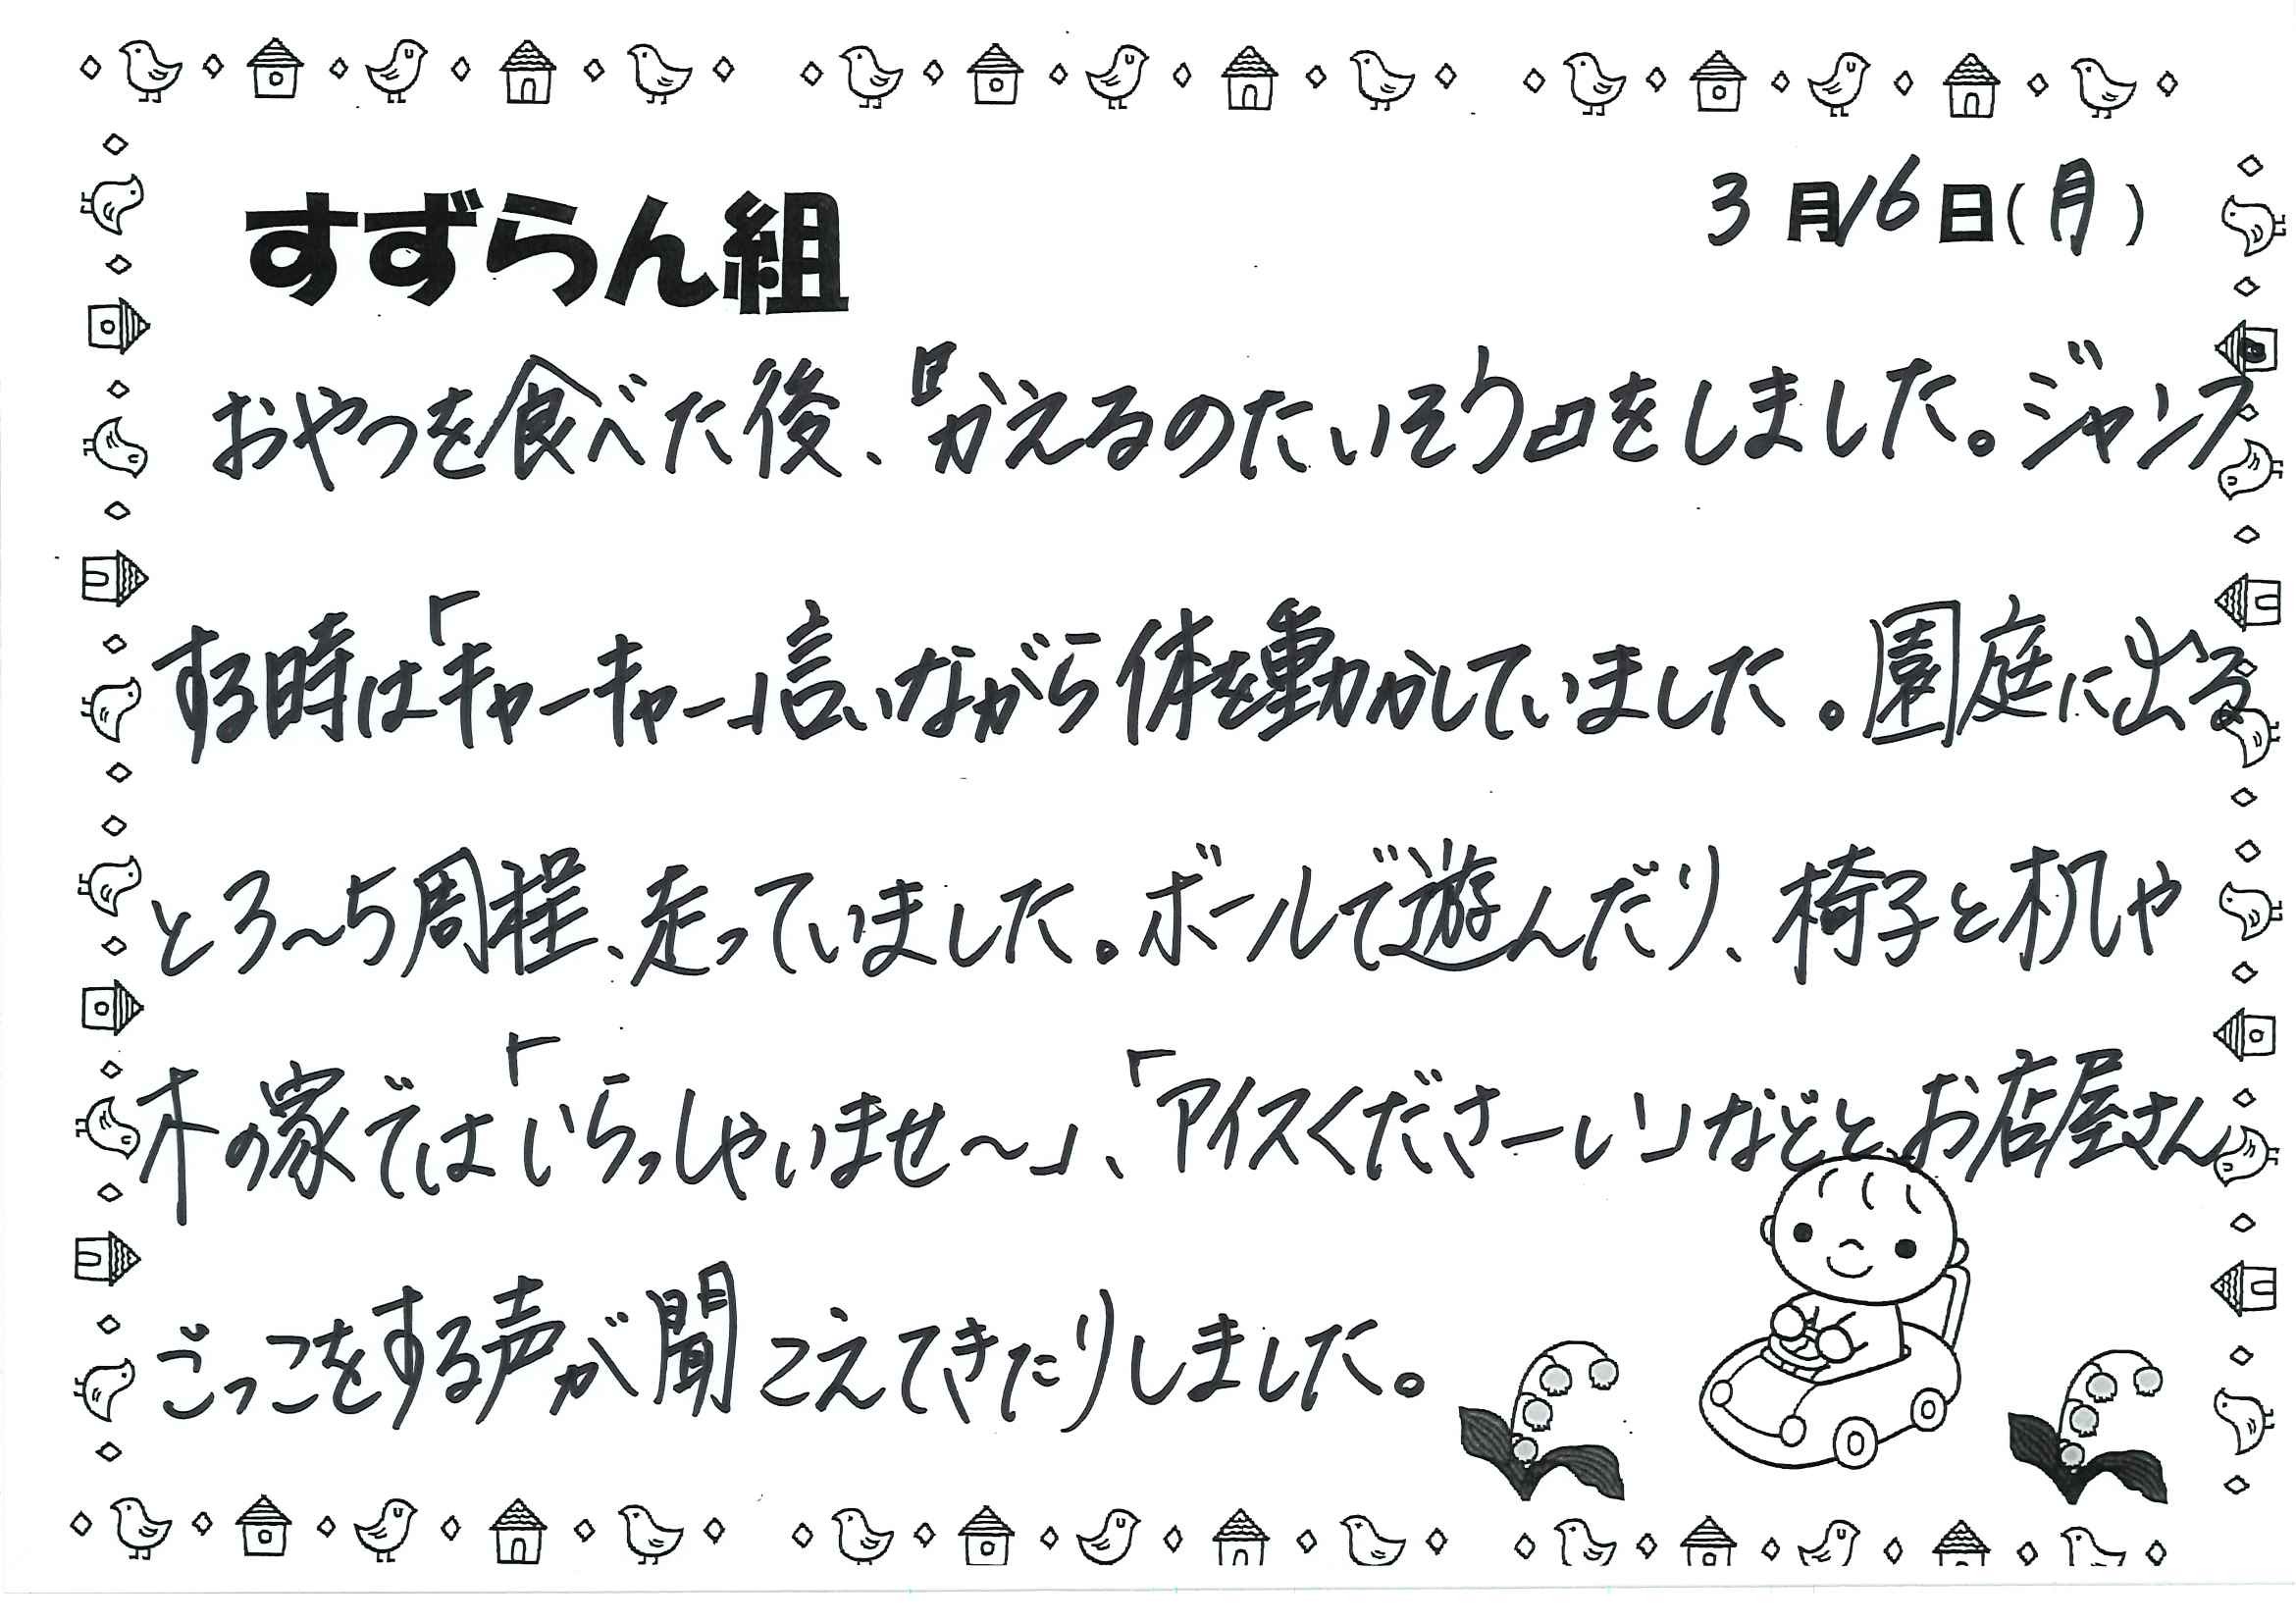 すずらん組
3月16日(月)
おやつを食べた後、『かえるのたいそう』をしました。ジャンプ
する時は「キャーキャー」言いながら体を動かしていました。園庭に出る
と3〜5周程、走っていました。ボールで遊んだり、椅子と机や
木の家では「いらっしゃいませ〜」、「アイスくださーい」などと、お店屋さん
ごっこをする声が聞こえてきたりしました。